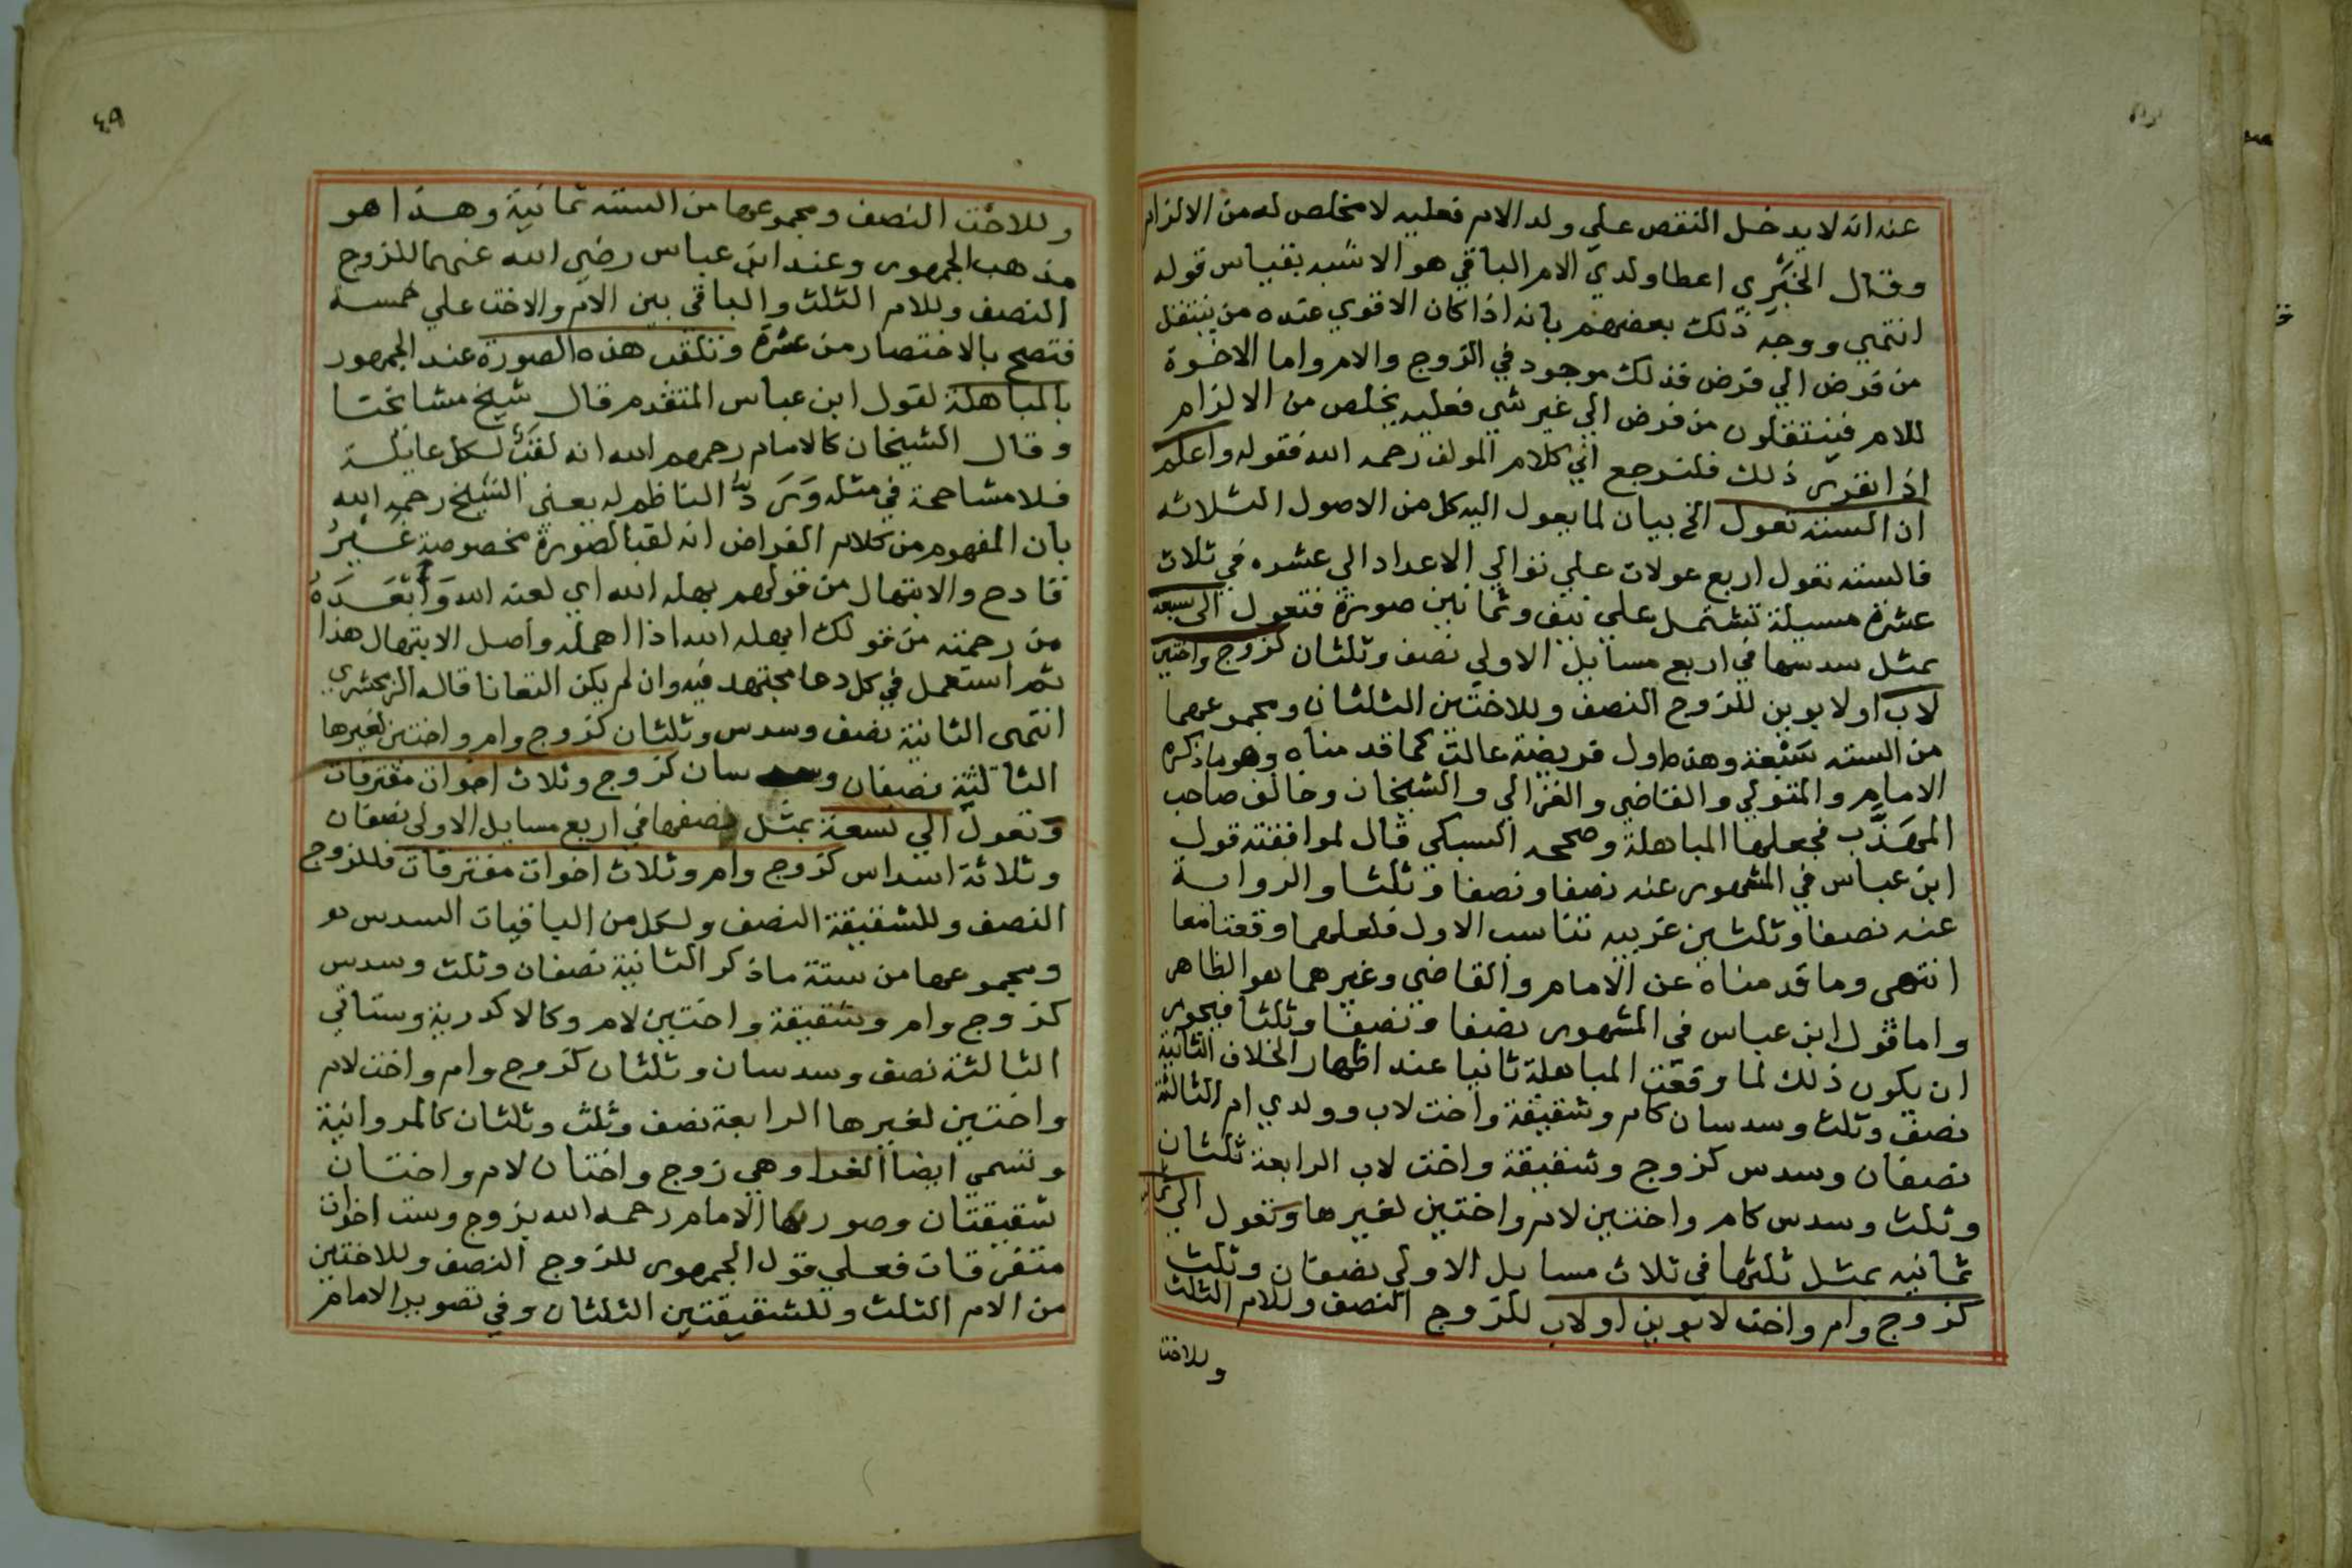 عنه انه لا يدخل النقص علي ولد الام فعليه لا مخلص له من الالزام
وقال الخَبْري اعطا ولدي الام الباقي هو الاشبه بقياس قوله
انتهي ووجه ذلك بعضهم بانه اذا كان الاقوي عنده من ينتقل
من فرض الي فرض فذلك موجود في الزوج والام واما الاخوة
للام فينتقلون من فرض الي غير شي فعليه يخلص من الالزام
اذا تقرر ذلك فلنرجع الي كلام المولف رحمه الله فقوله واعلم
ان الستة تعول الخ بيان لما يعول اليه كل من الاصول الثلاثه
فالسته تعول اربع عولات علي توالي الاعداد الي عشره في ثلاث
عشرة مسيلة تشتمل علي نيف وثمانين صورة فتعول الي سبعه
بمثل سدسها في اربع مسايل الاولي نصف وثلثان كزوج واختين
لاب اولابوين للزوج النصف وللاختين الثلثان ومجموعهما
من السته سَبْعة وهذه اول فريضة عالت كما قدمناه وهو ما ذكره
الامام والمتولي والقاضي والغزالي والشيخان وخالف صاحب
المهَذّب فجعلها المباهلة وصححه السبكي قال لموافقته قول
ابن عباس في المشهور عنه نصفا ونصفا وثلثا والرواية
عنه نصفا وثلثين غريبه تناسب الاول فلعلهما وقعتا معا
انتهى وما قدمناه عن الامام والقاضي وغيرهما هو الظاهر
واما قول ابن عباس في المشهور نصفا ونصفا وثلثا فيجوز
ان يكون ذلك لما وقعت المباهلة ثانيا عند اظهار الخلاف الثانية
نصف وثلث وسدسان كام وشقيقة واخت لاب وولدي ام الثالثة
نصفان وسدس كزوج وشقيقة واخت لاب الرابعة ثلثان
وثلث وسدس كام واختين لام واختين لغيرها وتعول الي
ثمانيه بمثل ثلثها في ثلاث مسايل الاولي نصفان وثلث
كزوج وام واخت لابوين اولاب للزوج النصف وللام الثلث
وللاخت
٤٩
وللاخت النصف ومجموعها من السته ثمانية وهذا هو
مذهب الجمهور وعند ابن عباس رضي الله عنهما للزوج
النصف وللام الثلث والباقي بين الام والاخت علي خمسة
فتصح بالاختصار من عشرة وتلقب هذه الصورة عند الجمهور
بالمباهلة لقول ابن عباس المتقدم قال شيخ مشايخنا
وقال الشيخان كالامام رحمهم الله انه لقب لكل عايلة
فلا مشاححة في مثله وَرَدَّهُ الناظم له يعني الشيخ رحمه الله
بان المفهوم من كلام الفراض انه لقبا لصورة مخصوصة غَيرُ
قادح والابتهال من قولهم بهله الله اي لعنه الله وَاَبْعَدَهُ
من رحمته من قولك ابهله الله اذا اهمله واصل الابتهال هذا
ثم استعمل في كل دعا مجتهد فيه وان لم يكن التعانا قاله الزمخشري
انتهى الثانية نصف وسدس وثلثان كزوج وام واختين لغيرها
الثالثة نصفان وسدسان كزوج وثلاث اخوات مفترقات
وتعول الي تسعة بمثل نصفها في اربع مسايل الاولى نصفان
وثلاثة اسداس كزوج وام وثلاث اخوات مفترقات فللزوج
النصف وللشقيقة النصف ولكل من الباقيات السدس هو
ومجموعها من ستة ما ذكر الثانية نصفان وثلث وسدس
كزوج وام وشقيقة واختين لام وكالاكدرية وستاتي
الثالثة نصف وسدسان وثلثان كزوج وام واخت لام
واختين لغيرها الرابعة نصف وثلث وثلثان كالمروانية
وتسمي ايضا الغرا وهي زوج واختان لام واختان
شقيقتان وصورها الامام رحمه الله بزوج وست اخوات
متفرقات فعلي قول الجمهور للزوج النصف وللاختين
من الام الثلث وللشقيقتين الثلثان وفي تصوير الامام